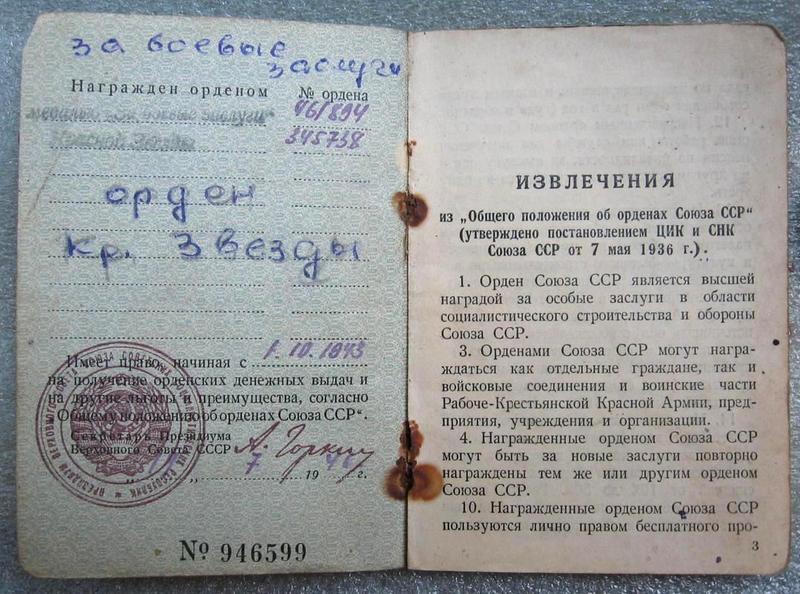 за боевые
заслуги
Награжден орденом № ордена
461894
345738
орден
кр. Звезды
Имеет право, начиная с 1.10.1943
на получение орденских денежных выдач и
на другие льготы и преимущества, согласно
„Общему положению об орденах Союза ССР“.
Секретарь Президиума
Верховного Совета СССР А. Горкин
7 19 г.
№ 946599
ИЗВЛЕЧЕНИЯ
из „Общего положения об орденах Союза ССР“
(утверждено постановлением ЦИК и СНК
Союза ССР от 7 мая 1936 г.).
1. Орден Союза ССР является высшей
наградой за особые заслуги в области
социалистического строительства и обороны
Союза ССР.
3. Орденами Союза ССР могут награ-
ждаться как отдельные граждане, так и
войсковые соединения и воинские части
Рабоче-Крестьянской Красной Армии, пред-
приятия, учреждения и организации.
4. Награжденные орденом Союза ССР
могут быть за новые заслуги повторно
награждены тем же или другим орденом
Союза ССР.
10. Награжденные орденом Союза ССР
пользуются лично правом бесплатного про-
3